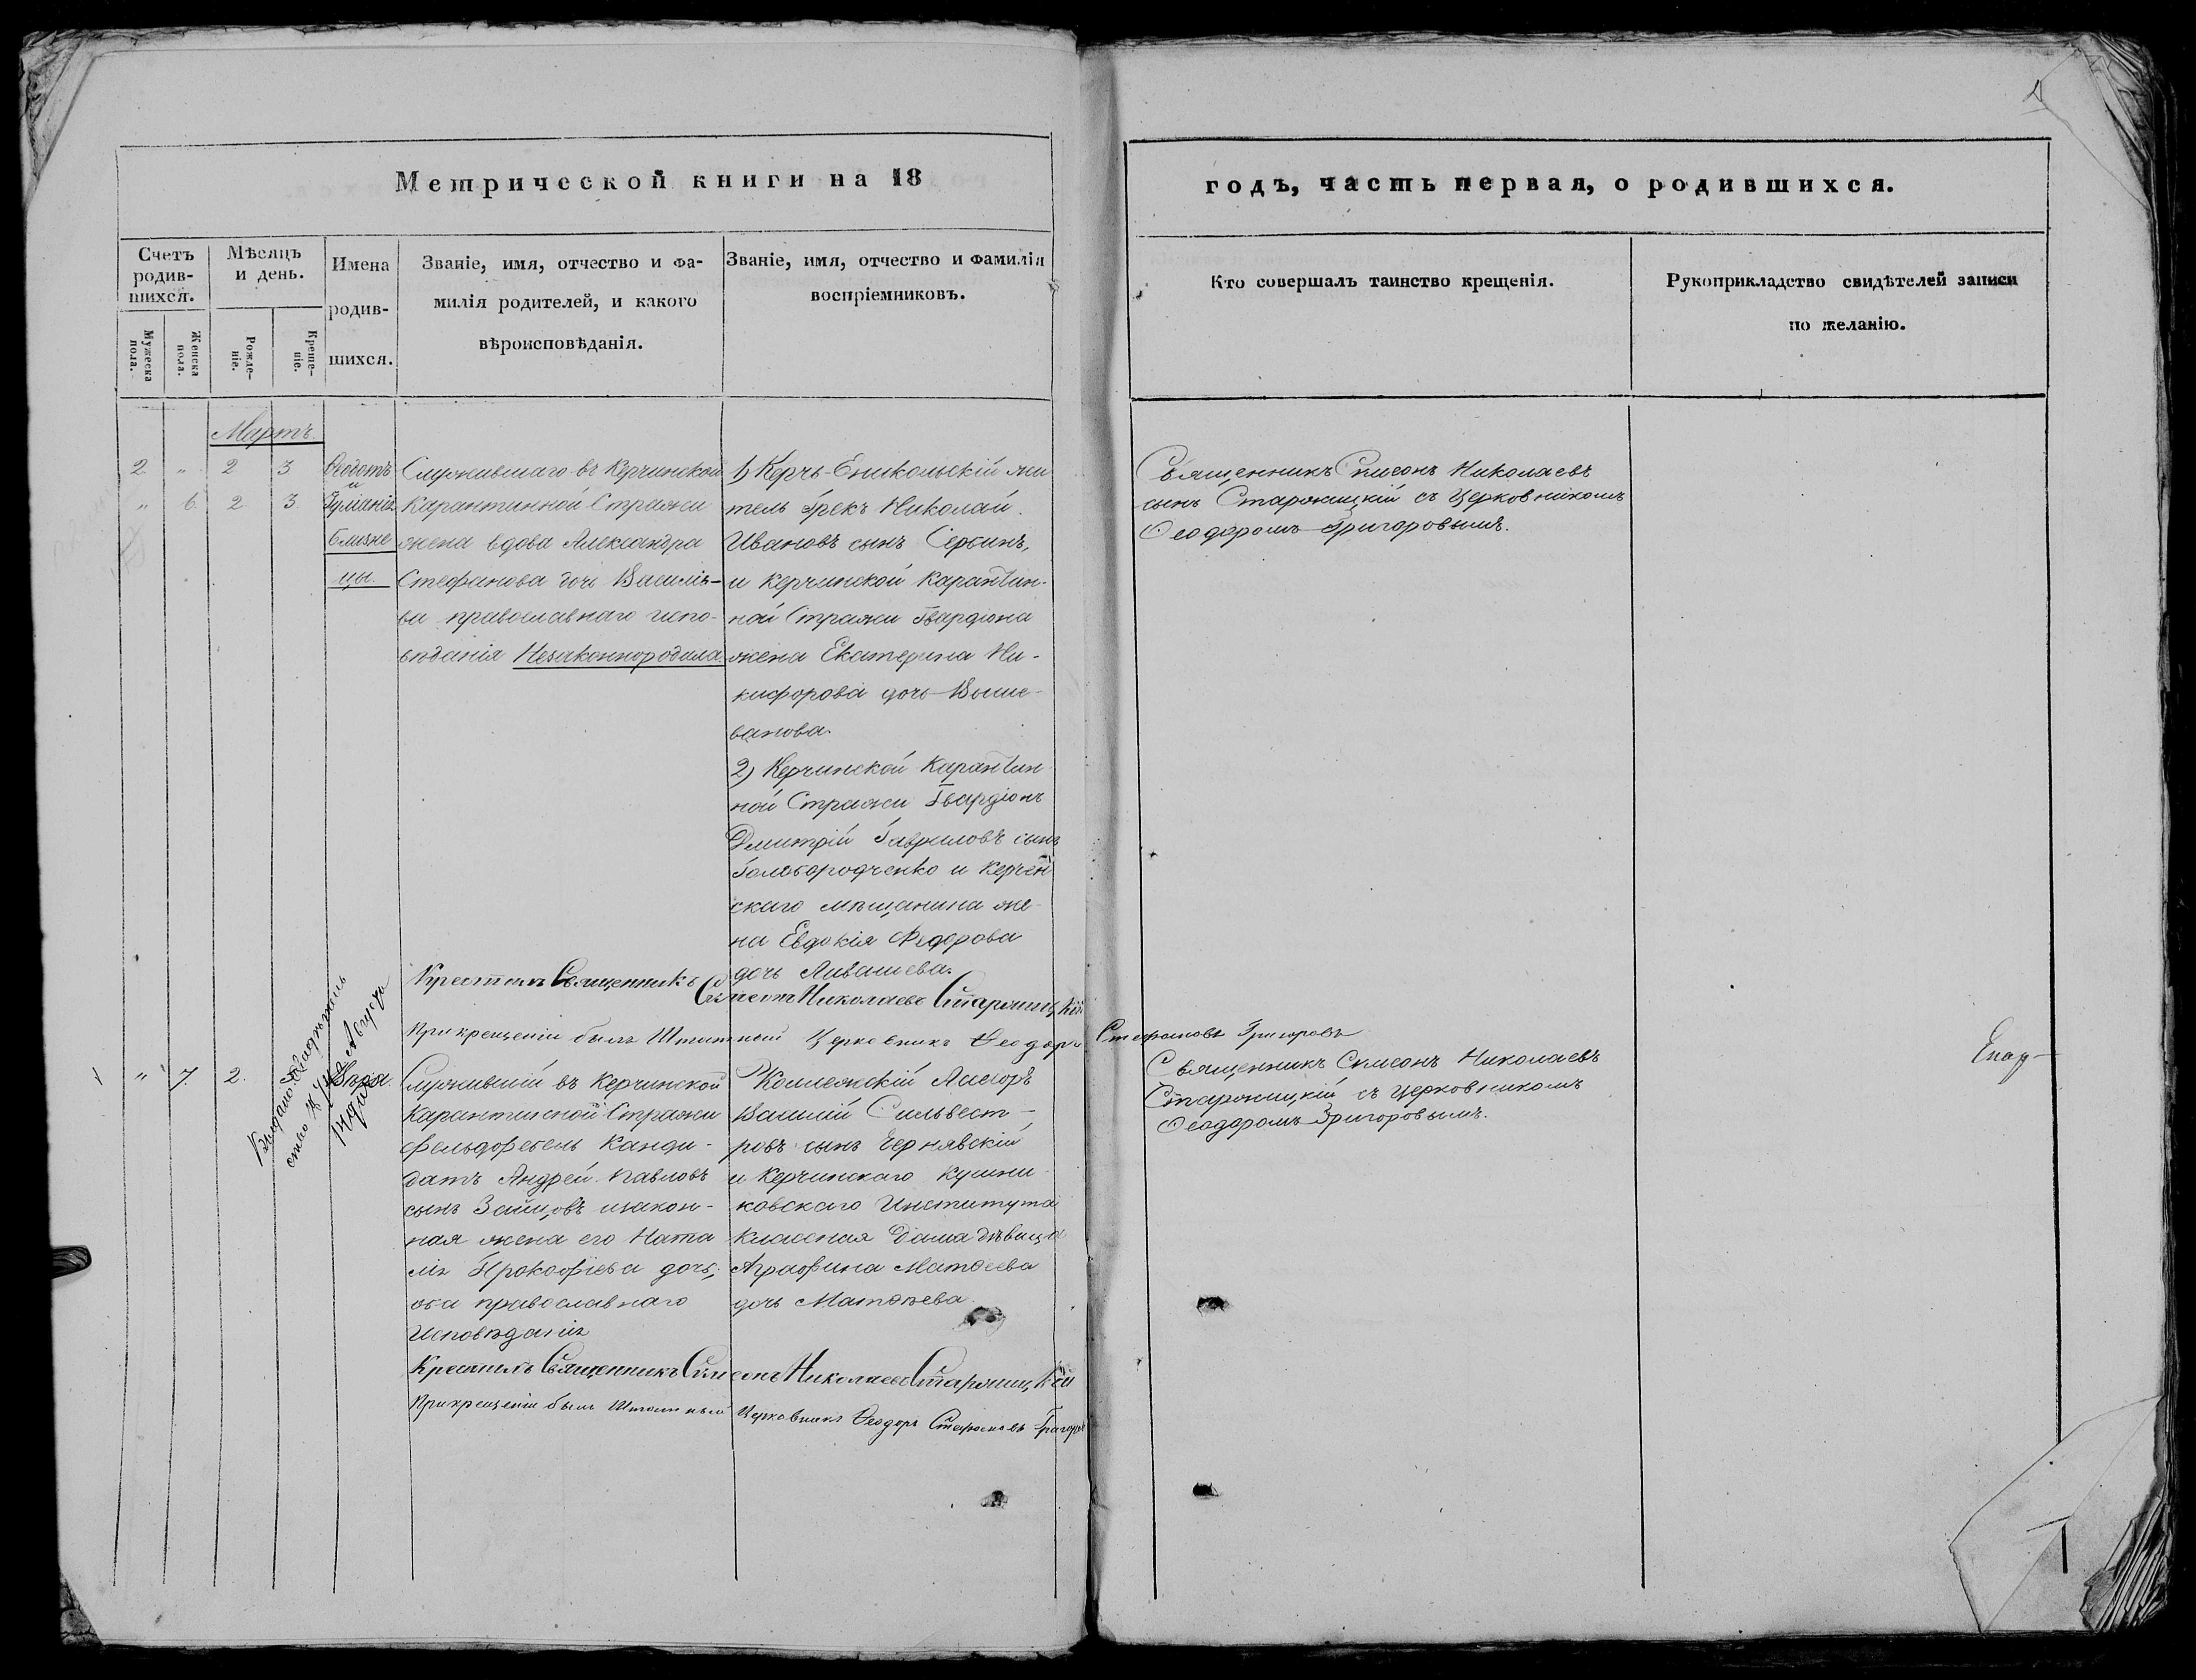 Метрической книги на 18
годъ, часть первая, о родившихся.
Счетъ родив-шихся.
Мужеска пола.
Женска пола.
Мѣсяцъ и день.
Рожде-ніе.
Креще-ніе.
Имена
родив-
шихся.
Званіе, имя, отчество и фа-
милія родителей, и какого
вѣроисповѣданія.
Званіе, имя, отчество и фамилія
воспріемниковъ.
Кто совершалъ таинство крещенія.
Рукоприкладство свидѣтелей записи
по желанію.
Мартъ.
2 " 2 3
" 6. 2 3
Ѳеодотъ
и
Іуліанія
близне
цы.
Служившаго въ Керчинской
Карантинной Стражи
жена вдова Александра
Стефанова дочь Василіе-
ва православнаго испо-
вѣданія Незаконнородила
1) Керчь-Еникольскій жи
тель Грекъ Николай
Ивановъ сынъ Сербинъ,
и Керчинской Карантин-
ной Стражи Гвардіона
жена Екатерина Ни-
кифорова дочь Выше-
ванова.
2) Керчинской Карантин
ной Стражи Гвардіонъ
Дмитрій Гавриловъ сынъ
Голобородченко и Керчен
скаго мѣщанина же-
на Евдокія Ѳедорова
дочь Аивашева.
Священникъ Симеонъ Николаевъ
сынъ Старжицкій съ Церковникомъ
Ѳеодоромъ Григоровымъ.
Крестилъ Священникъ Симеонъ Николаевъ Старжицкій
При крещеніи былъ Штатный Церковникъ Ѳеодоръ Стефановъ Григоровъ
" 7. 2.
Служившій въ Керчинской
Карантинной Стражи
фельдфебель Канди-
датъ Андрей Павловъ
сынъ Зайцовъ изакон-
ная жена его Ната
лія Прокофіева дочь,
оба православнаго
Исповѣданія
Коллежскій Ассесоръ
Василій Сильвест-
ровъ сынъ Чернявскій
и Керчинскаго Кушни
ковскаго Института
классная Дама дѣвица
Аграфина Матѳеева
дочь Матѳѣева.
Священникъ Симеонъ Николаевъ
Старжицкій съ Церковникомъ
Ѳеодоромъ Григоровымъ.
Крестилъ Священникъ Симеонъ Николаевъ Старжицкій
При крещеніи былъ Штатный Церковникъ Ѳеодоръ Стефановъ Григоров
Епар-